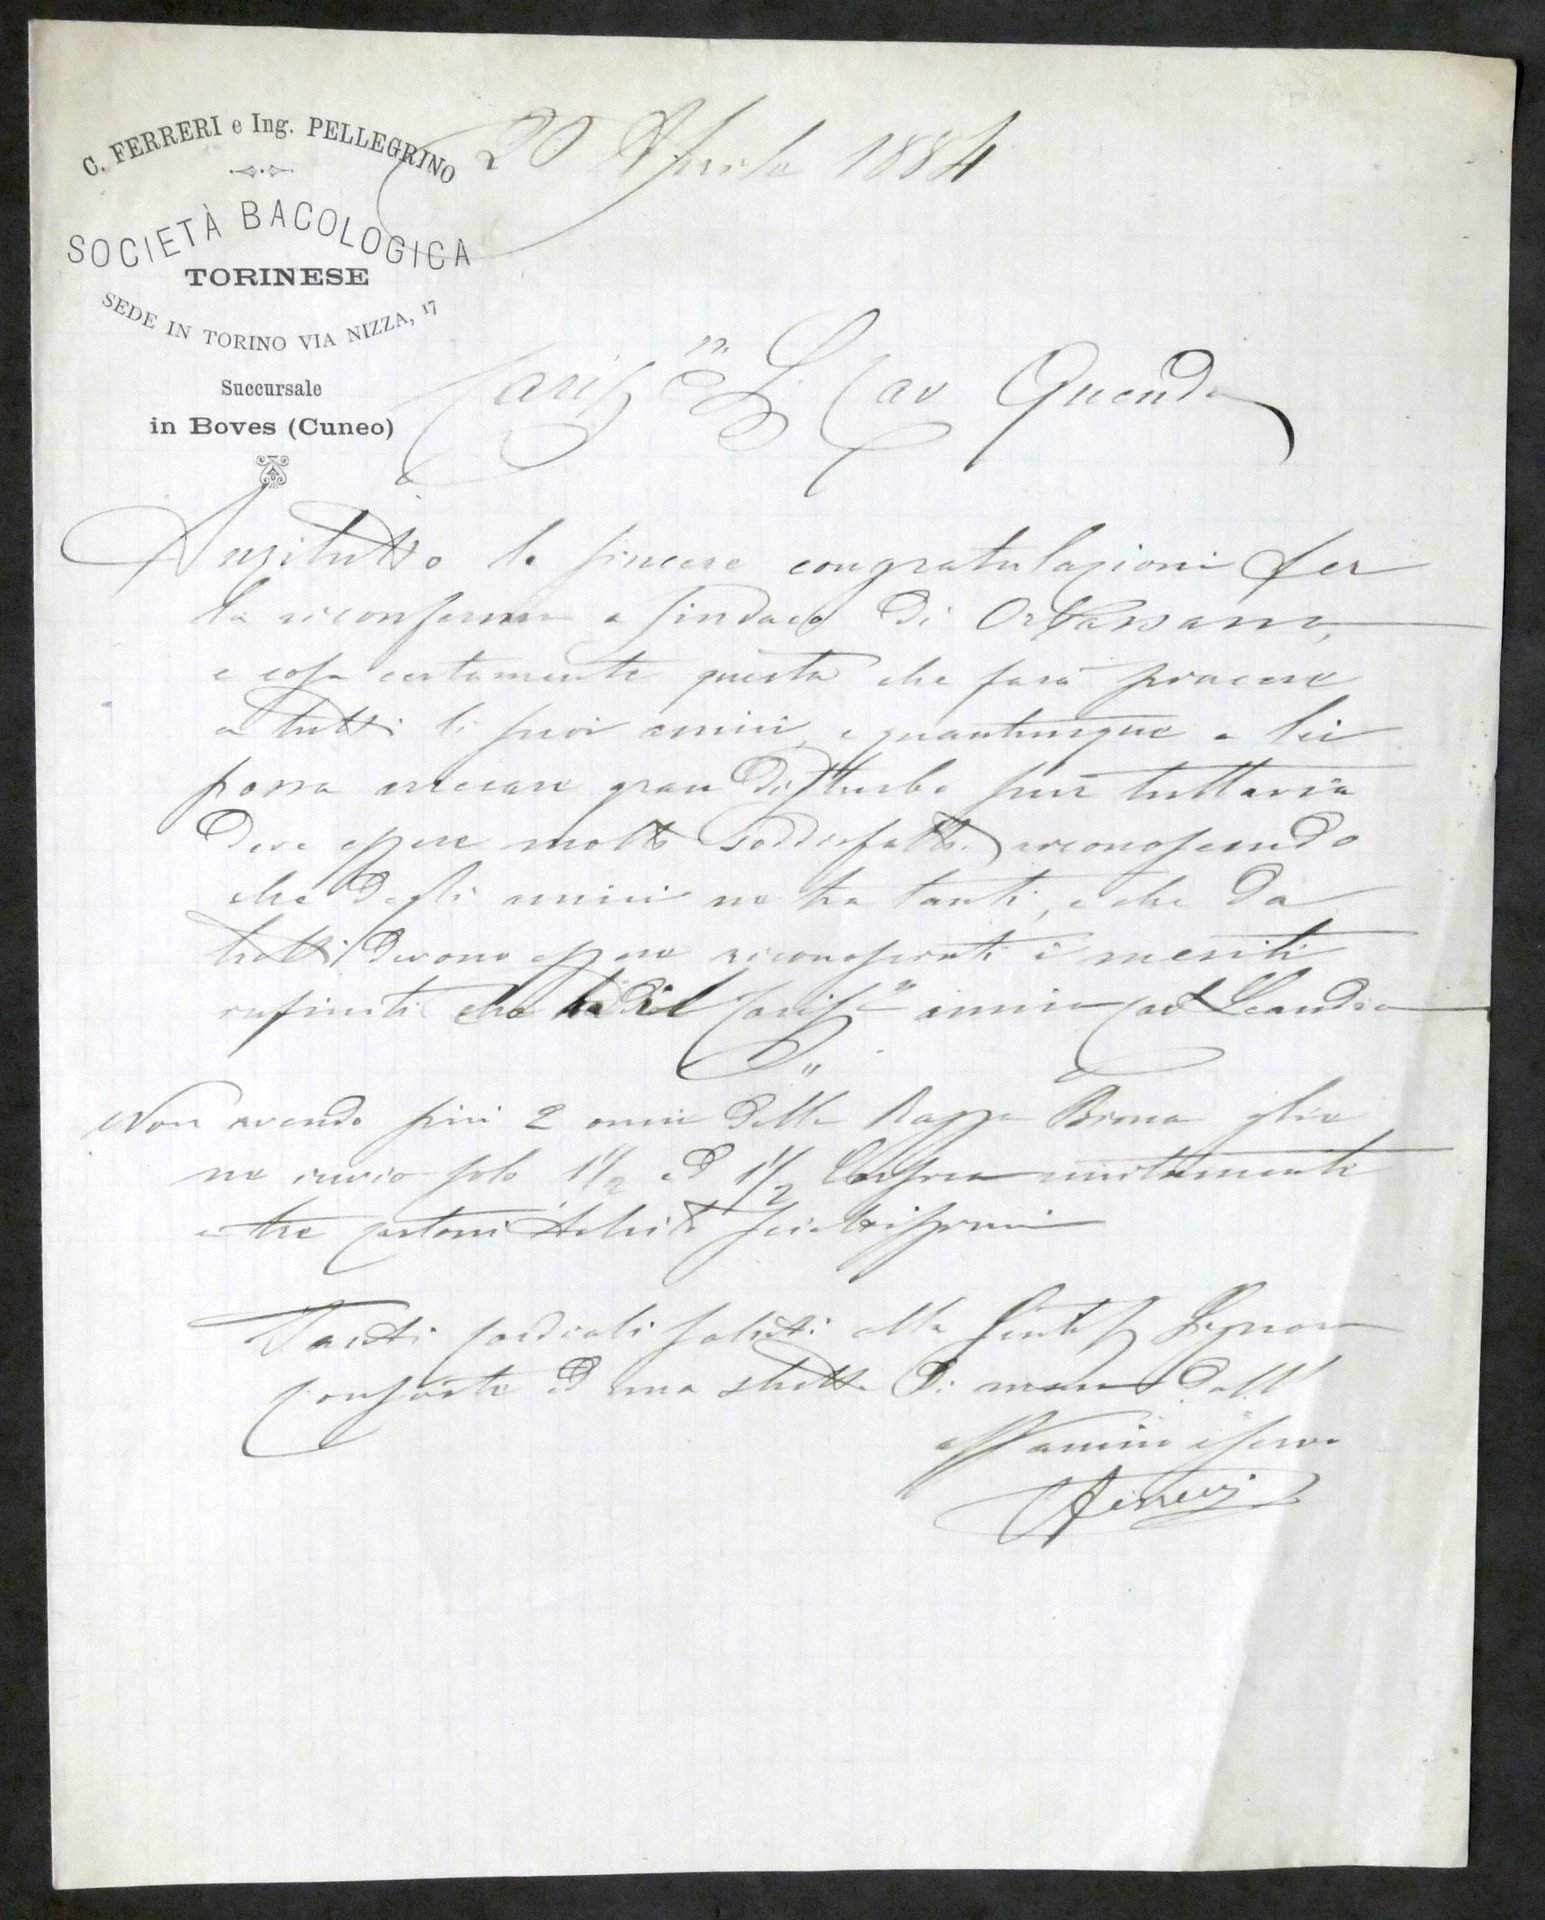 C. FERRERI e Ing. PELLEGRINO
SOCIETÀ BACOLOGICA
TORINESE
SEDE IN TORINO VIA NIZZA, 17
Succursale
in Boves (Cuneo)
20 Aprile 1884
Cariss.mo S. Cav Quenda
Anzitutto le sincere congratulazioni per
la riconferma a sindaco di Orbassano,
e cosa certamente questa che farà piacere
a tutti li suoi amici, e quantunque a lei
possa arrecare gran disturbo pur tuttavia
deve essere molto soddisfatto riconoscendo
che degli amici ne ha tanti, e che da
tutti devono essere riconosciuti i meriti
infiniti che ha il Cariss.mo amico Cav
Non avendo più 2 oncie della Razza Roma gliene
ne invio solo 1 1/2 ed 1 1/2 unitamente
a tre cartoni
Tanti cordiali saluti alla Gentiss Signora
consorte ed una stretta di mano dall'
aff amico e servo
Ferreri